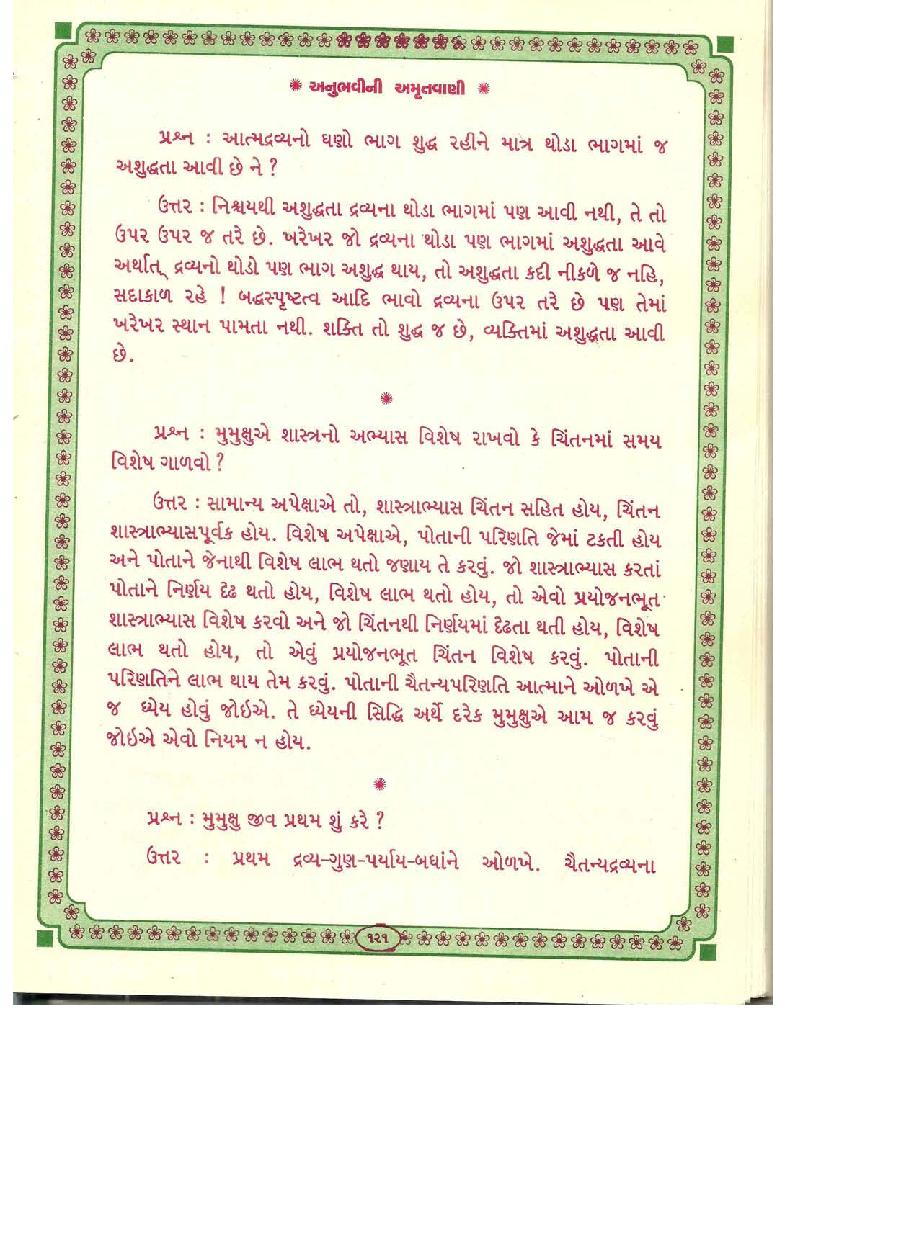 અનુભવીની અમૃતવાણી
પ્રશ્ન : આત્મદ્રવ્યનો ઘણો ભાગ શુદ્ધ રહીને માત્ર થોડા ભાગમાં જ
અશુદ્ધતા આવી છે ને ?
ઉત્તર : નિશ્ચયથી અશુદ્ધતા દ્રવ્યના થોડા ભાગમાં પણ આવી નથી, તે તો
ઉપર ઉપર જ તરે છે. ખરેખર જો દ્રવ્યના થોડા પણ ભાગમાં અશુદ્ધતા આવે
અર્થાત્ દ્રવ્યનો થોડો પણ ભાગ અશુદ્ધ થાય, તો અશુદ્ધતા કદી નીકળે જ નહિ,
સદાકાળ રહે ! બદ્ધસ્પૃષ્ટત્વ આદિ ભાવો દ્રવ્યના ઉપર તરે છે પણ તેમાં
ખરેખર સ્થાન પામતા નથી. શક્તિ તો શુદ્ધ જ છે, વ્યક્તિમાં અશુદ્ધતા આવી
છે.
પ્રશ્ન : મુમુક્ષુએ શાસ્ત્રનો અભ્યાસ વિશેષ રાખવો કે ચિંતનમાં સમય
વિશેષ ગાળવો ?
ઉત્તર : સામાન્ય અપેક્ષાએ તો, શાસ્ત્રાભ્યાસ ચિંતન સહિત હોય, ચિંતન
શાસ્ત્રાભ્યાસપૂર્વક હોય. વિશેષ અપેક્ષાએ, પોતાની પરિણતિ જેમાં ટકતી હોય
અને પોતાને જેનાથી વિશેષ લાભ થતો જણાય તે કરવું. જો શાસ્ત્રાભ્યાસ કરતાં
પોતાને નિર્ણય દૃઢ થતો હોય, વિશેષ લાભ થતો હોય, તો એવો પ્રયોજનભૂત
શાસ્ત્રાભ્યાસ વિશેષ કરવો અને જો ચિંતનથી નિર્ણયમાં દૃઢતા થતી હોય, વિશેષ
લાભ થતો હોય, તો એવું પ્રયોજનભૂત ચિંતન વિશેષ કરવું. પોતાની
પરિણતિને લાભ થાય તેમ કરવું. પોતાની ચૈતન્યપરિણતિ આત્માને ઓળખે એ
જ ધ્યેય હોવું જોઇએ. તે ધ્યેયની સિદ્ધિ અર્થે દરેક મુમુક્ષુએ આમ જ કરવું
જોઇએ એવો નિયમ ન હોય.
પ્રશ્ન : મુમુક્ષુ જીવ પ્રથમ શું કરે ?
ઉત્તર : પ્રથમ દ્રવ્ય-ગુણ-પર્યાય-બધાંને ઓળખે. ચૈતન્યદ્રવ્યના
૧૨૧